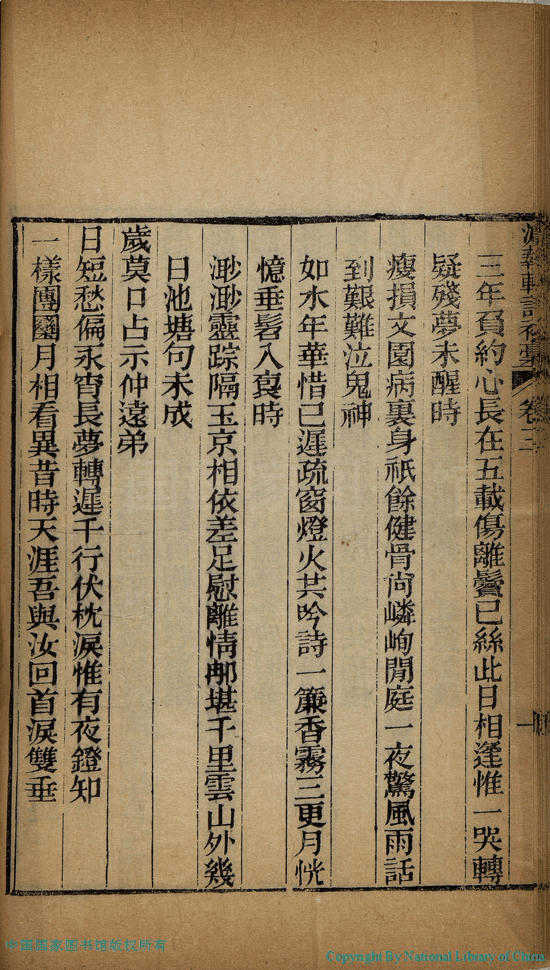 軒詩初稾 卷三 一
三年負約心長在五載傷離鬢已絲此日相逢惟一哭轉
疑殘夢未醒時
瘦損文園病裏身祇餘健骨尙嶙峋閒庭一夜驚風雨話
到艱難泣鬼神
如水年華惜已遲疏窗燈火共吟詩一簾香霧三更月恍
憶垂髫入㒵時
渺渺靈踪隔玉京相依差足慰離情郍堪千里雲山外幾
日池塘句未成
歲莫口占示仲遠弟
日短愁偏永宵長夢轉遲千行伏枕淚惟有夜鐙知
一樣團圞月相看異昔時天涯吾與汝回首淚雙垂
中国国家图书馆版权所有
Copyright By National Library of China